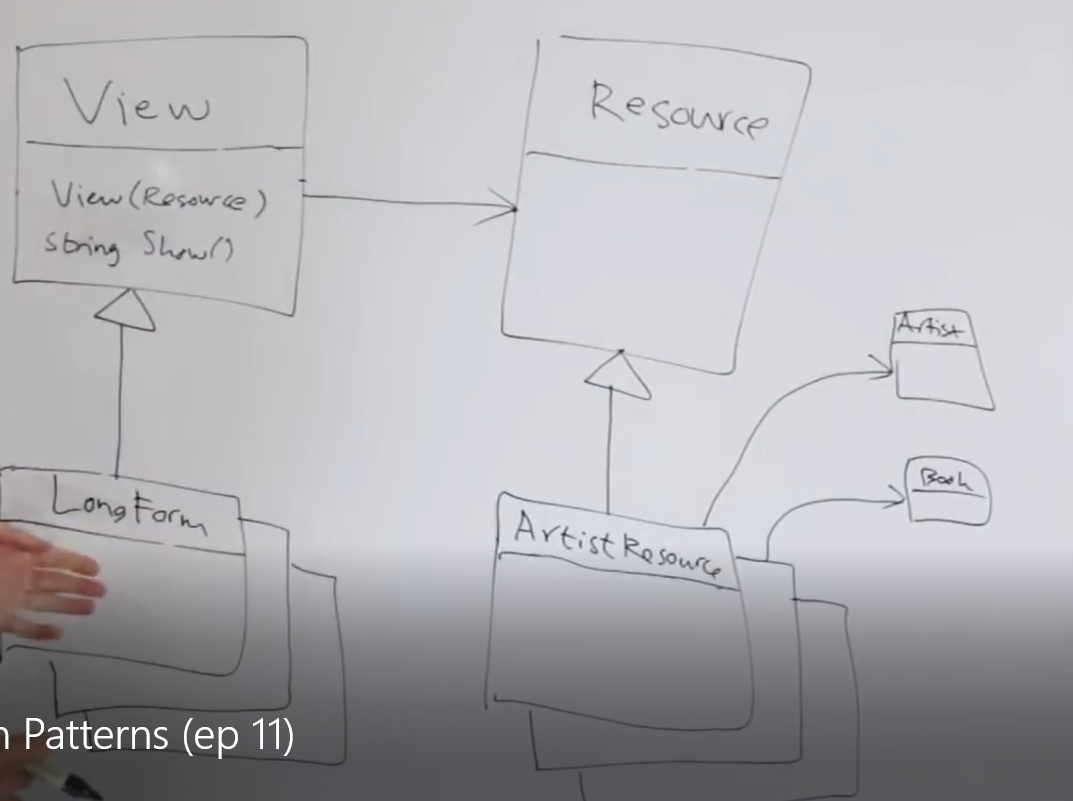 View
View(Resource)
string Show()
Resource
Artist
Book
LongForm
ArtistResource
n Patterns (ep 11)